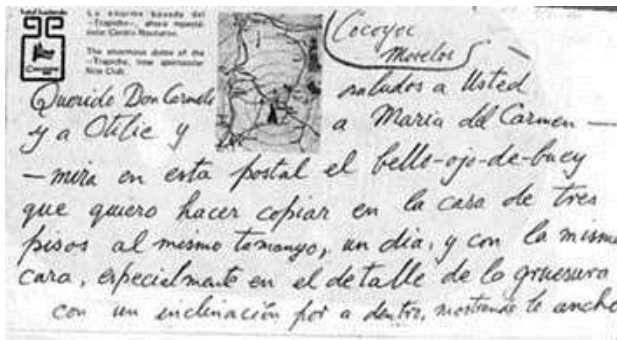 La enorme bóveda del
"Trapiche", ahora
Centro Nocturno.
The enormous dome of the
"Trapiche, now spectacular
Nite Club.
Cocoyoc
Morelos
Querido Don Carmelo saludos a Usted
y a Otilie y a Maria del Carmen —
— mira en esta postal el bello-ojo-de-buey
que quiero hacer copiar en la casa de tres
pisos al mismo tamanyo, un dia, y con la misma
cara, especialmente en el detalle de la gruesura
con un inclinación por a dentro, mostrando lo ancho